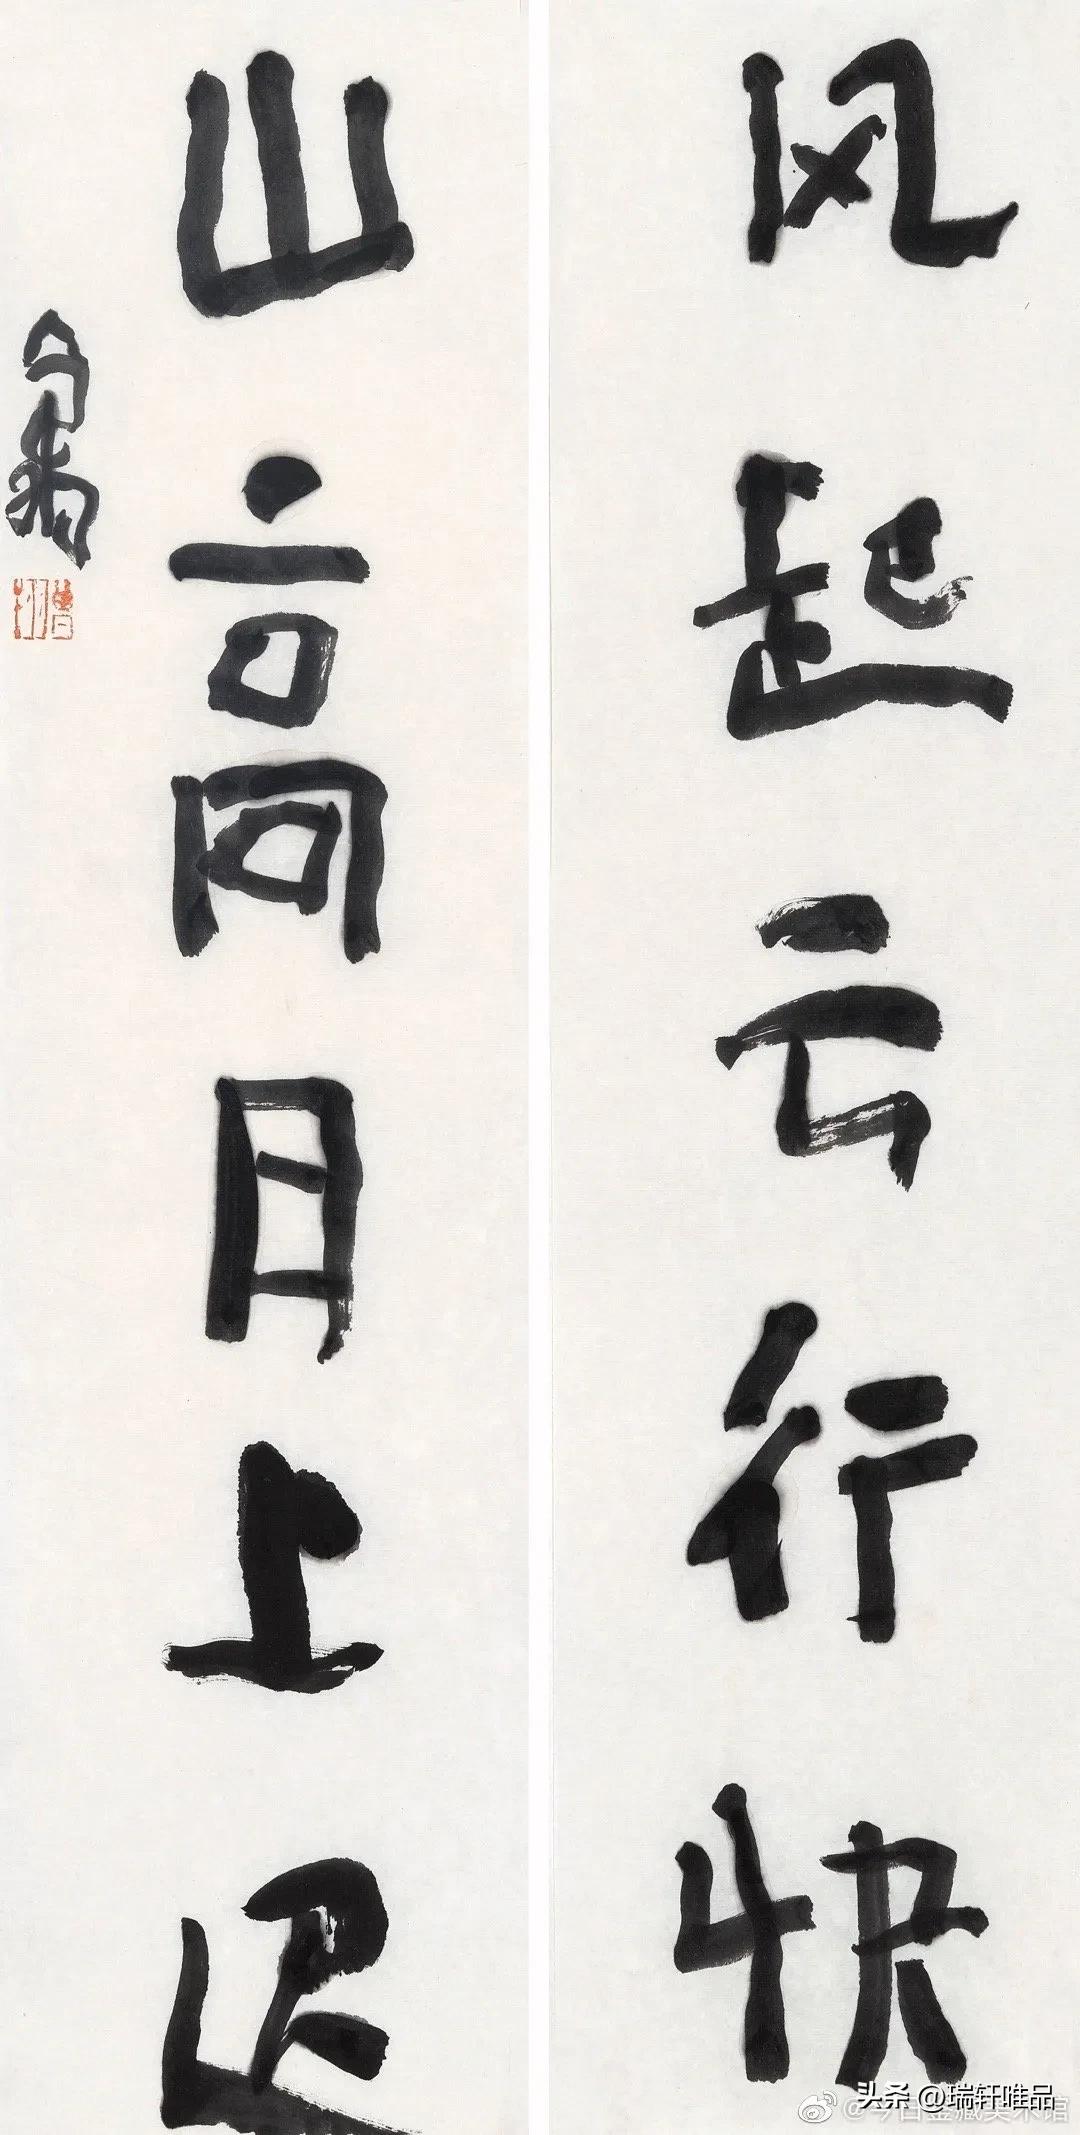 风起云行快
山高月上迟
头条 @瑞轩唯品